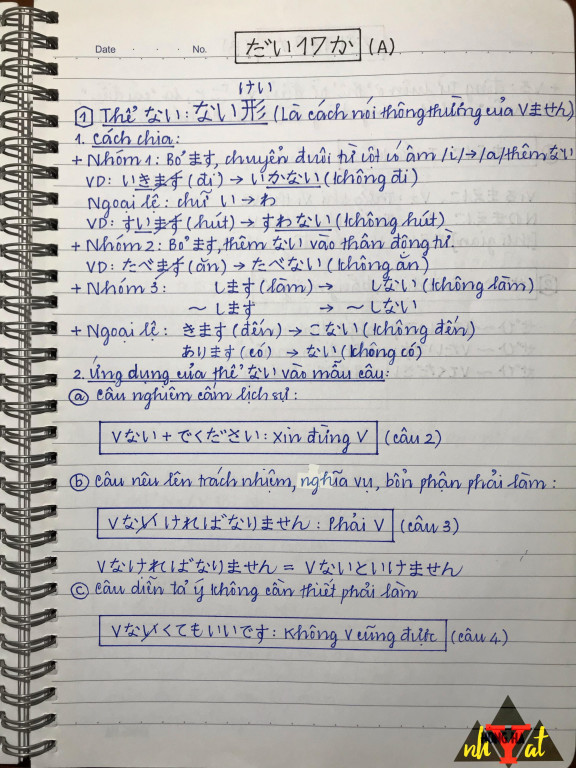 Date . . . No. だい17か (A)
けい
1 Thể ない: ない形 (Là cách nói thông thường của Vません)
1. Cách chia:
+ Nhóm 1: Bỏ ます, chuyển đuôi từ cột có âm /i/→/a/thêm ない
VD: いきます (đi) → いかない (không đi)
Ngoại lệ: chữ い→わ
VD: すいます (hút) → すわない (không hút)
+ Nhóm 2: Bỏ ます, thêm ない vào thân động từ.
VD: たべます (ăn) → たべない (không ăn)
+ Nhóm 3: します (làm) → しない (không làm)
～します → ～しない
+ Ngoại lệ: きます (đến) → こない (không đến)
あります (có) → ない (không có)
2. Ứng dụng của thể ない vào mẫu câu:
a Câu nghiêm cấm lịch sự:
Vない + でください: Xin đừng V (câu 2)
b Câu nêu lên trách nhiệm, nghĩa vụ, bổn phận phải làm:
Vないければなりません: Phải V (câu 3)
Vなければなりません = Vないといけません
c Câu diễn tả ý không cần thiết phải làm
Vないくてもいいです: Không V cũng được (câu 4)
nhYat